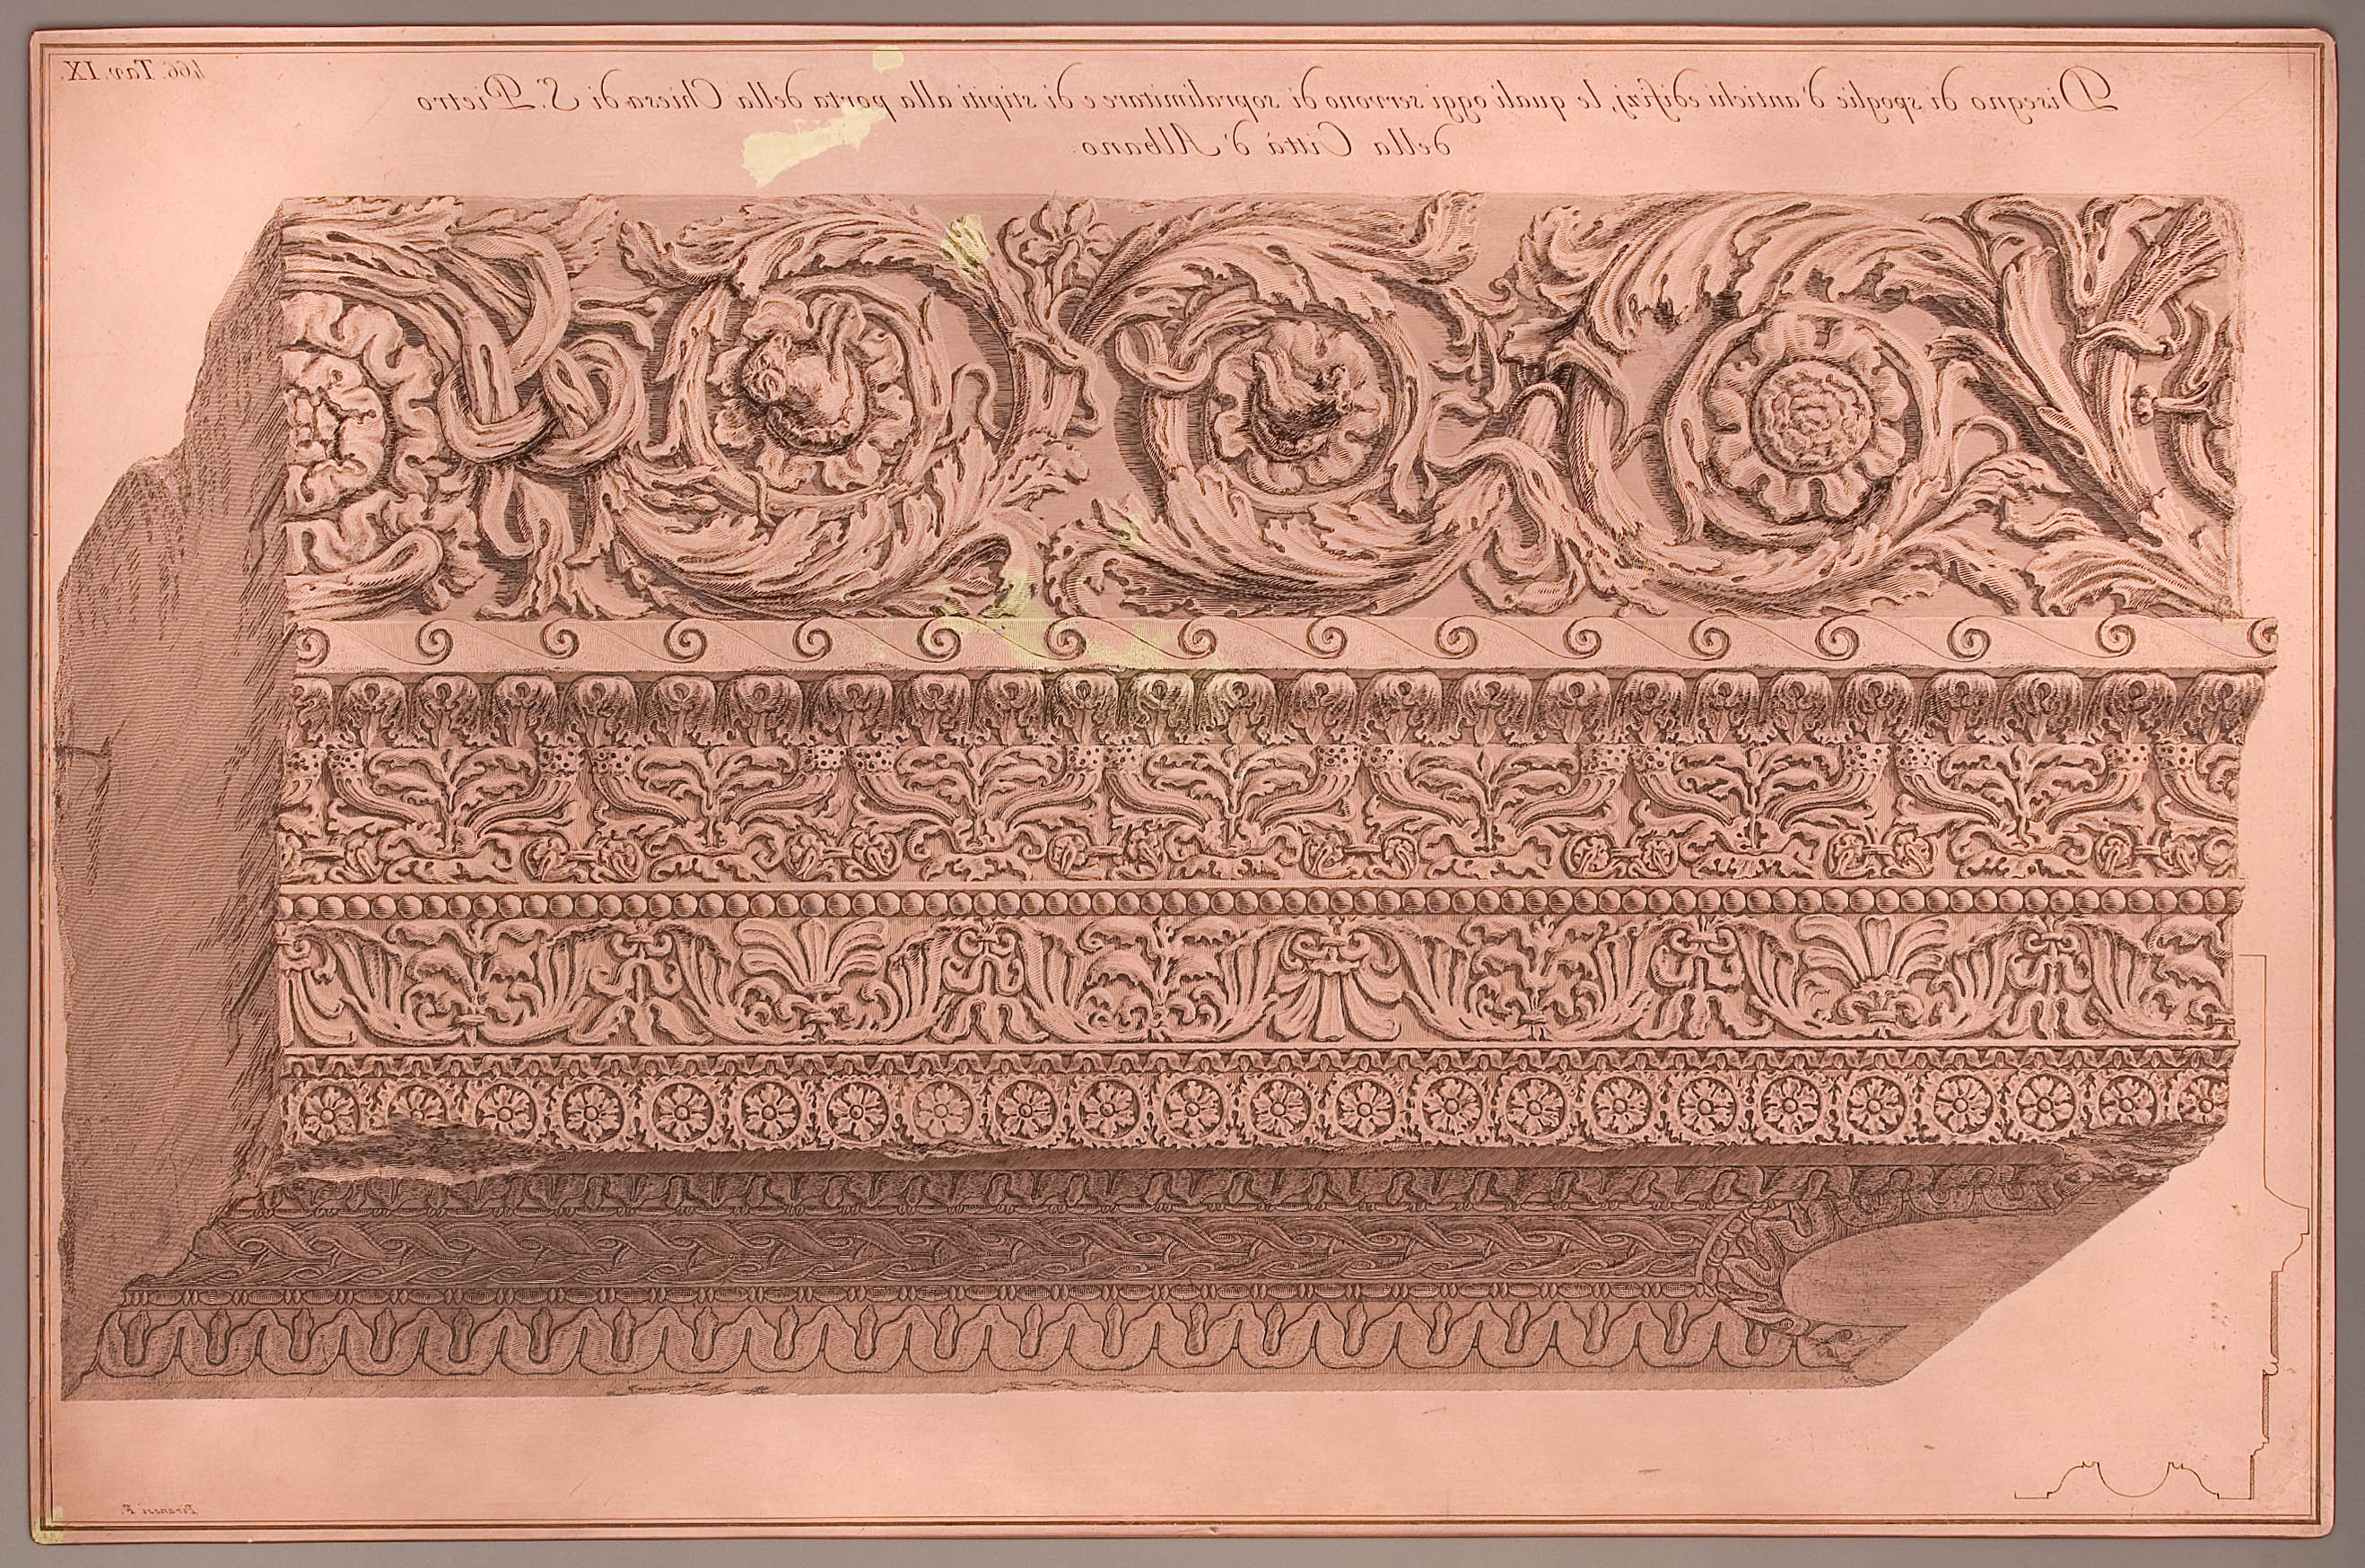 466. Tav. IX.
Disegno di spoglie d'antichi edifizj, le quali oggi servono di sopralimitare e di stipiti alla porta della Chiesa di S. Pietro
della Città d'Albano.
Piranesi F.